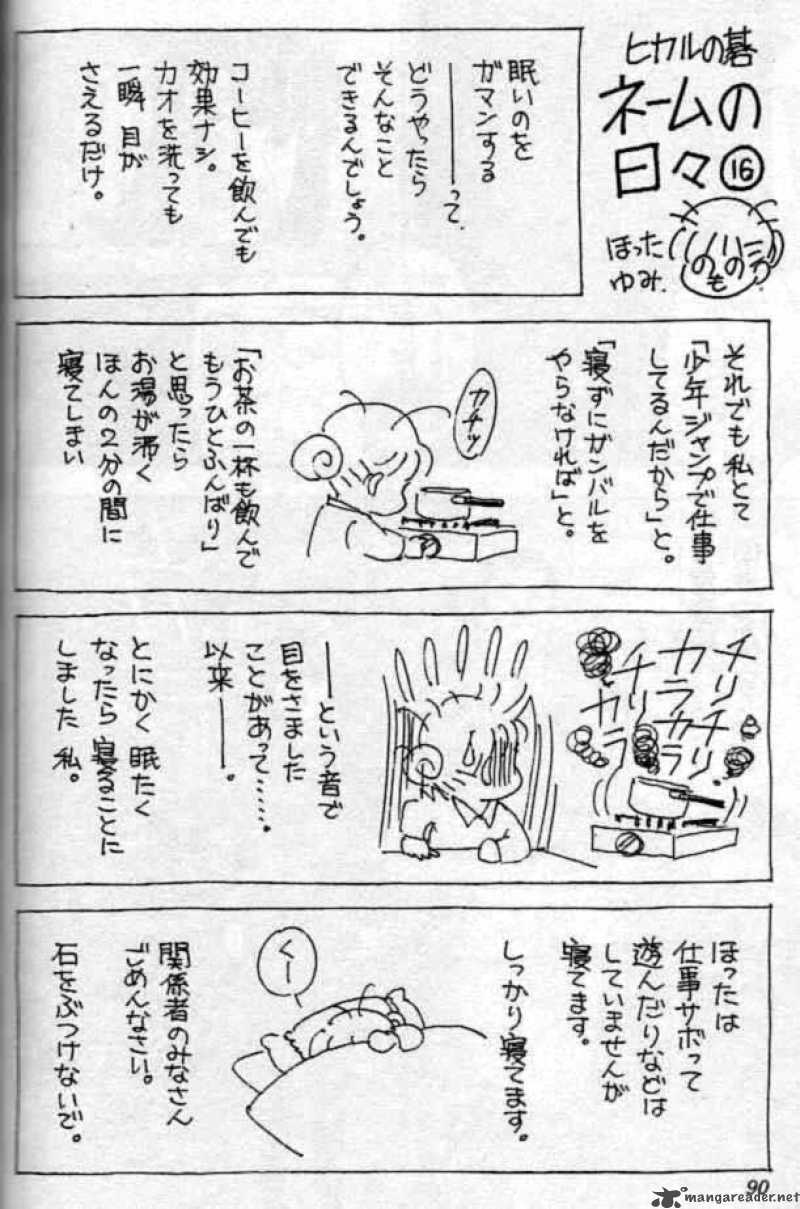 ヒカルの碁
ネームの
日々⑯
ほった
ゆみ.
眠いのを
ガマンする
———って.
どうやったら
そんなこと
できるんでしょう。
コーヒーを飲んでも
効果ナシ。
カオを洗っても
一瞬 目が
さえるだけ。
それでも私とて
「少年ジャンプで仕事
してるんだから」と。
「寝ずにガンバルを
やらなければ」と。
カチッ
「お茶の一杯も飲んで
もうひとふんばり」
と思ったら
お湯が沸く
ほんの2分の間に
寝てしまい
チリチリ
カラカラ
チリ
カラ
———という音で
目をさました
ことがあって……。
以来———。
とにかく 眠たく
なったら 寝ることに
しました 私。
ほったは
仕事サボって
遊んだりなどは
していませんが
寝てます。
しっかり寝てます。
くー
関係者のみなさん
ごめんなさい。
石をぶつけないで。
90
mangareader.net